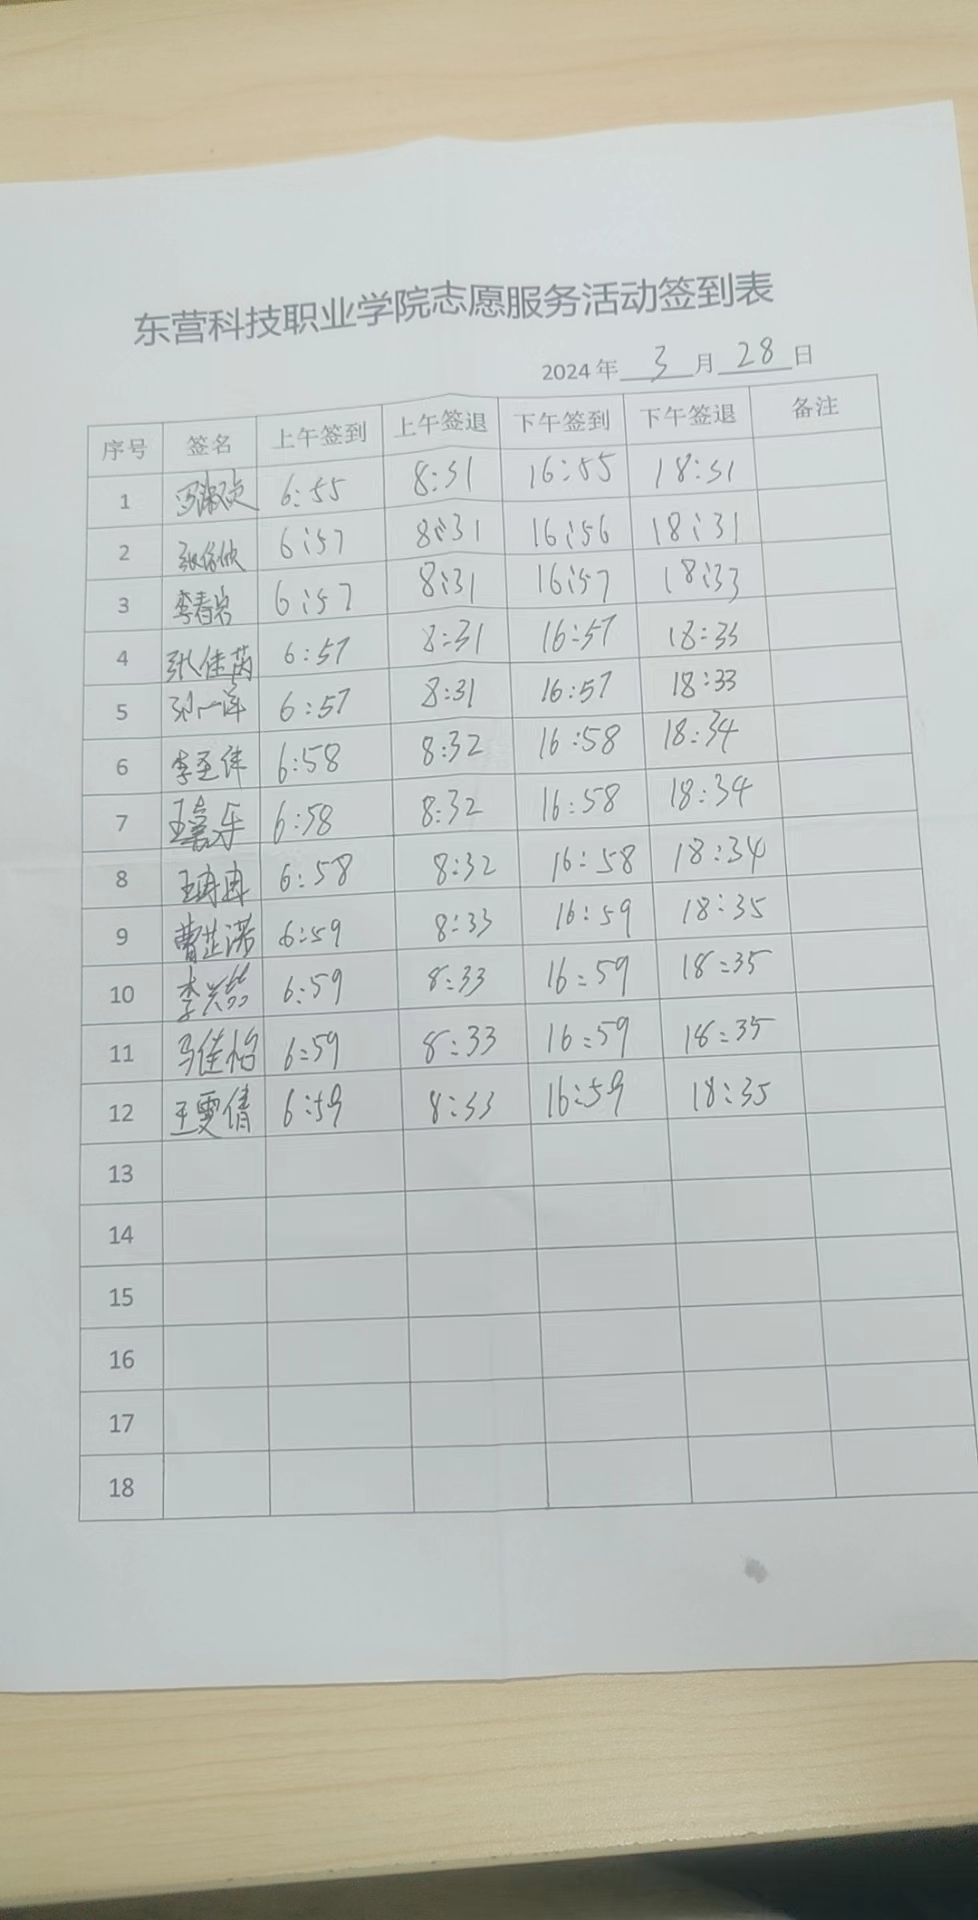 东营科技职业学院志愿服务活动签到表
2024 年 3 月 28 日
序号 签名 上午签到 上午签退 下午签到 下午签退 备注
1 6:55 8:31 16:55 18:31
2 6:57 8:31 16:56 18:31
3 李春岩 6:57 8:31 16:57 18:33
4 张佳茵 6:57 8:31 16:57 18:33
5 6:57 8:31 16:57 18:33
6 李亚伟 6:58 8:32 16:58 18:34
7 王嘉乐 6:58 8:32 16:58 18:34
8 王冉冉 6:58 8:32 16:58 18:34
9 曹芷诺 6:59 8:33 16:59 18:35
10 6:59 8:33 16:59 18:35
11 马佳怡 6:59 8:33 16:59 18:35
12 王雯倩 6:59 8:33 16:59 18:35
13
14
15
16
17
18